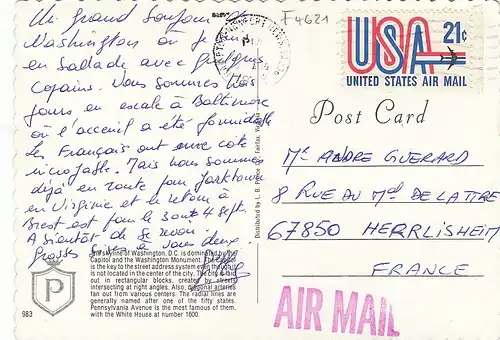 Un grand bonjour de
Washington où je suis
en ballade avec quelques
copains. Nous sommes
jours en escale à Baltimore
où l'acceuil a été formidable
Les Français ont une côte
incroyable. Mais nous sommes
déjà en route pour Yorktown
en Virginie et le retour à
Brest est pour le 4 sept.
A bientôt de se revoir
Grosses bises à vous deux.
The skyline of Washington, D.C. is dominated by the
Capitol and the Washington Monument. The Capitol
is the key to the street address system even though it
is not located in the center of the city. The city is laid
out in rectangular blocks, created by streets
intersecting at right angles. Also, diagonal arteries
fan out from various centers. The radial lines are
generally named after one of the fifty states.
Pennsylvania Avenue is the most famous of them,
with the White House at number 1600.
P
983
Distributed by L. B. Prince Fairfax,
F4621
USA 21c
UNITED STATES AIR MAIL
Post Card
Mr ANDRE GUERARD
8 RUE DU Mal DE LATTRE
67850 HERRLISHEIM
FRANCE
AIR MAIL